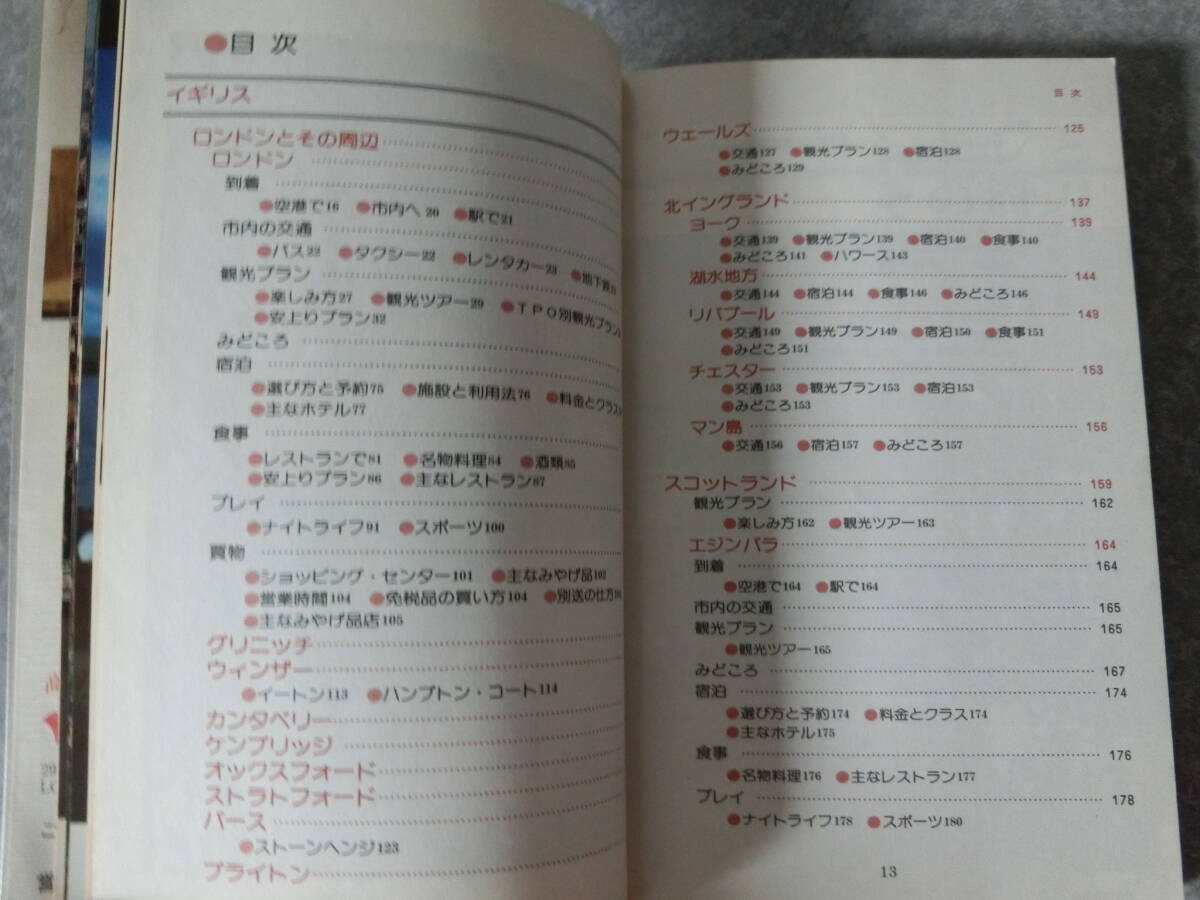 ●目 次
イギリス
ロンドンとその周辺
ロンドン
到着
●空港で16 ●市内へ20 ●駅で21
市内の交通
●バス22 ●タクシー22 ●レンタカー23 ●地下鉄
観光プラン
●楽しみ方27 ●観光ツアー29 ●TPO別観光プラン
●安上りプラン32
みどころ
宿泊
●選び方と予約75 ●施設と利用法76 ●料金とクラス
●主なホテル77
食事
●レストランで81 ●名物料理84 ●酒類85
●安上りプラン86 ●主なレストラン87
プレイ
●ナイトライフ91 ●スポーツ100
買物
●ショッピング・センター101 ●主なみやげ品102
●営業時間104 ●免税品の買い方104 ●別送の仕方
●主なみやげ品店105
グリニッチ
ウィンザー
●イートン113 ●ハンプトン・コート114
カンタベリー
ケンブリッジ
オックスフォード
ストラトフォード
バース
●ストーンヘンジ123
ブライトン
目 次
ウェールズ 125
●交通127 ●観光プラン128 ●宿泊128
●みどころ129
北イングランド 137
ヨーク 139
●交通139 ●観光プラン139 ●宿泊140 ●食事140
●みどころ141 ●ハワース143
湖水地方 144
●交通144 ●宿泊144 ●食事146 ●みどころ146
リバプール 149
●交通149 ●観光プラン149 ●宿泊150 ●食事151
●みどころ151
チェスター 153
●交通153 ●観光プラン153 ●宿泊153
●みどころ153
マン島 156
●交通156 ●宿泊157 ●みどころ157
スコットランド 159
観光プラン 162
●楽しみ方162 ●観光ツアー163
エジンバラ 164
到着 164
●空港で164 ●駅で164
市内の交通 165
観光プラン 165
●観光ツアー165
みどころ 167
宿泊 174
●選び方と予約174 ●料金とクラス174
●主なホテル175
食事 176
●名物料理176 ●主なレストラン177
プレイ 178
●ナイトライフ178 ●スポーツ180
13